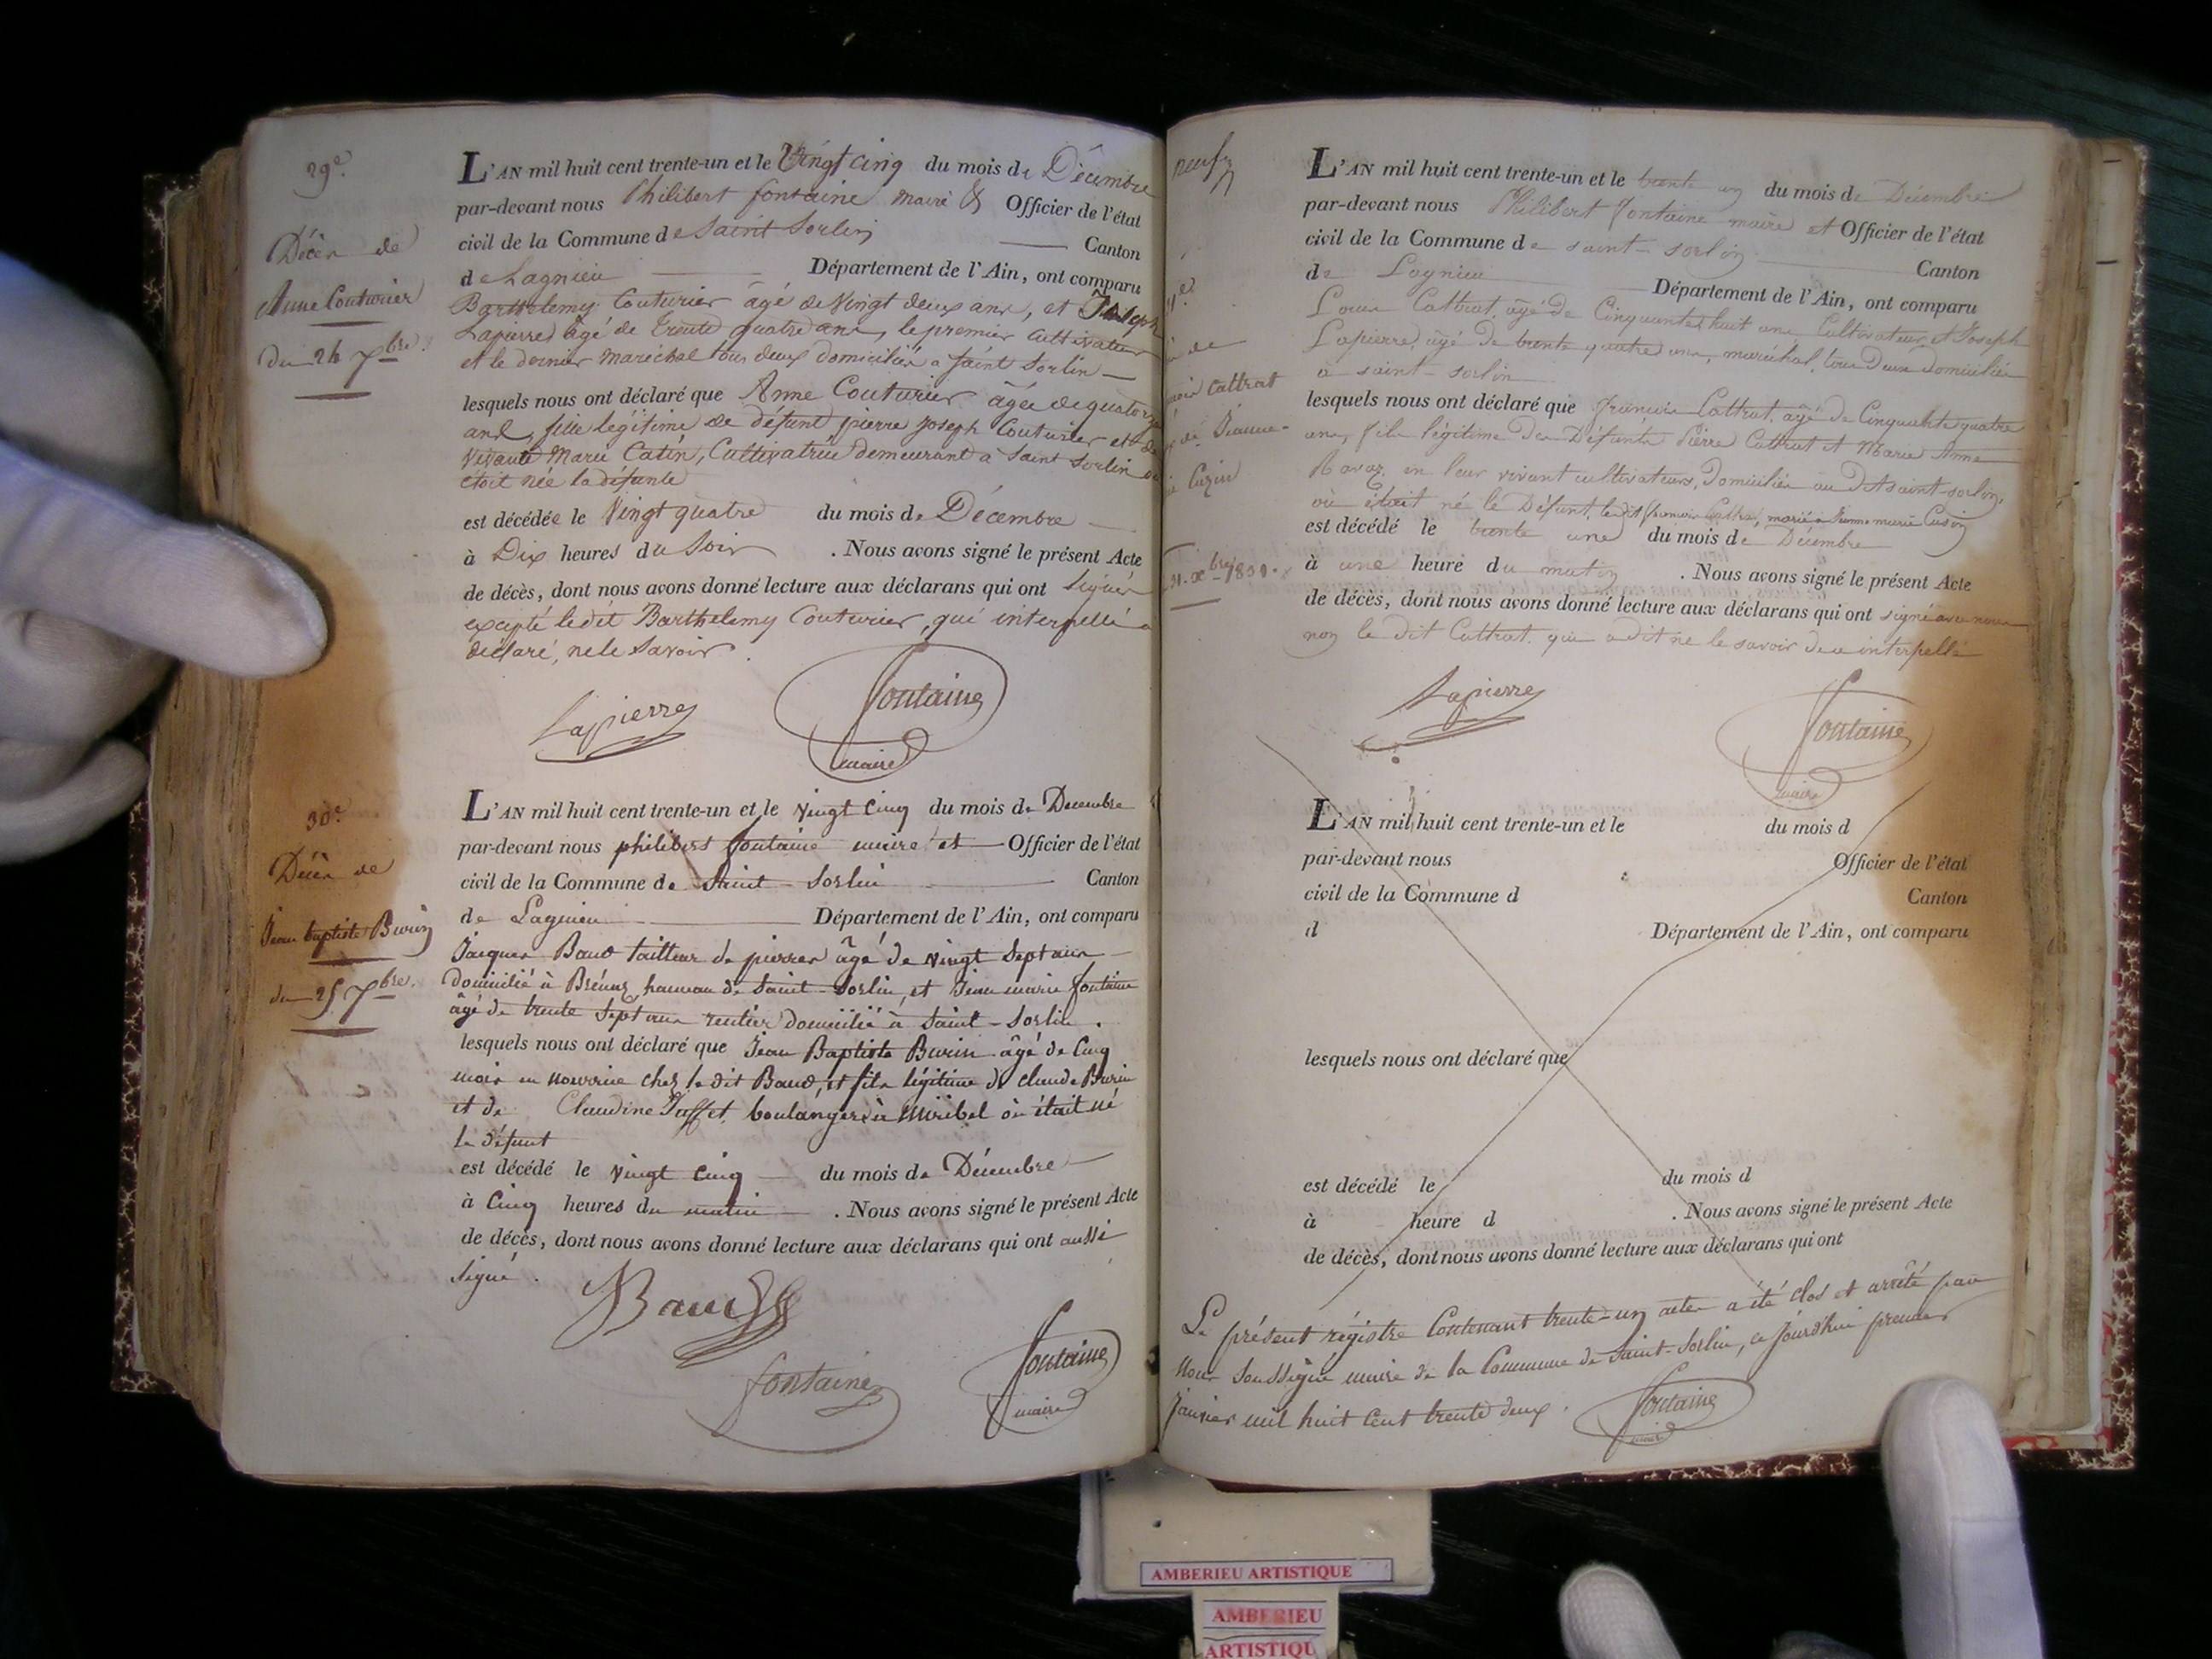 29e.
Décès de
Anne Couturier
du 24 Xbre.
L'AN mil huit cent trente-un et le Vingt cinq du mois de Décembre
par-devant nous Philibert fontaine maire & Officier de l'état
civil de la Commune de Saint Sorlin Canton
de Lagnieu Département de l'Ain, ont comparu
Barthelemy Couturier âgé de Vingt deux ans, et Joseph
Lapierre âgé de trente quatre ans, le premier cultivateur
et le dernier maréchal tous deux domiciliés a saint Sorlin
lesquels nous ont déclaré que Anne Couturier âgée de quatorze
ans, fille légitime de défunt pierre joseph Couturier et de
vivante Marie Catin, Cultivatrice demeurant à Saint Sorlin ou
étoit née la défunte
est décédée le Vingt quatre du mois de Décembre
à Dix heures du Soir . Nous avons signé le présent Acte
de décès, dont nous avons donné lecture aux déclarans qui ont Signés
excepté ledit Barthelemy Couturier, qui interpellé a
déclaré, ne le Savoir.
Lapierre fontaine
maire
30e.
Décès de
Jean baptiste Burin
du 25 Xbre.
L'AN mil huit cent trente-un et le vingt cinq du mois de Decembre
par-devant nous philibert fontaine maire et Officier de l'état
civil de la Commune de Saint-Sorlin Canton
de Lagnieu Département de l'Ain, ont comparu
Jacques Baud tailleur de pierres âgé de vingt Sept ans
domicilié à hameau de Saint-Sorlin, et Jean marie fontaine
âgé de trente Sept ans rentier domicilié à Saint-Sorlin.
lesquels nous ont déclaré que Jean Baptiste Burin âgé de Cinq
mois en nourrice chez le dit Baud, et fils légitime de claude Burin
et de Claudine boulangers à Miribel où était né
le défunt
est décédé le vingt cinq du mois de Décembre
à Cinq heures du matin . Nous avons signé le présent Acte
de décès, dont nous avons donné lecture aux déclarans qui ont aussi
Signé.
Baud
fontaine fontaine
maire
Cattrat
de Jeanne-
Cuzin
31. Xbre 1831.
L'AN mil huit cent trente-un et le trente un du mois de Décembre
par-devant nous Philibert fontaine maire et Officier de l'état
civil de la Commune de saint-sorlin Canton
de Lagnieu Département de l'Ain, ont comparu
Louis Cattrat, âgé de Cinquante huit ans Cultivateur et Joseph
Lapierre, âgé de trente quatre ans, maréchal, tous Deux Domiciliés
à saint-sorlin
lesquels nous ont déclaré que françois Cattrat, âgé de Cinquante quatre
ans, fils légitime des Défunts Pierre Cattrat et Marie Anne
Ravaz, en leur vivant cultivateurs, Domiciliés au Dit saint-sorlin,
où était né le Défunt, le dit françois Cattrat, marié à Jeanne marie Cuzin
est décédé le trente une du mois de Décembre
à une heure du matin . Nous avons signé le présent Acte
de décès, dont nous avons donné lecture aux déclarans qui ont signé avec nous
non le dit Cattrat qui a dit ne le savoir de ce interpellé
Lapierre fontaine
maire
L'AN mil huit cent trente-un et le du mois d
par-devant nous Officier de l'état
civil de la Commune d Canton
d Département de l'Ain, ont comparu
lesquels nous ont déclaré que
est décédé le du mois d
à heure d . Nous avons signé le présent Acte
de décès, dont nous avons donné lecture aux déclarans qui ont
Le présent régistre Contenant trente-un actes a été clos et arrêté par
nous Soussigné maire de la Commune de Saint-Sorlin, ce jourd'hui premier
janvier mil huit Cent trente deux.
fontaine
maire
AMBERIEU ARTISTIQUE
AMBERIEU
ARTISTIQU